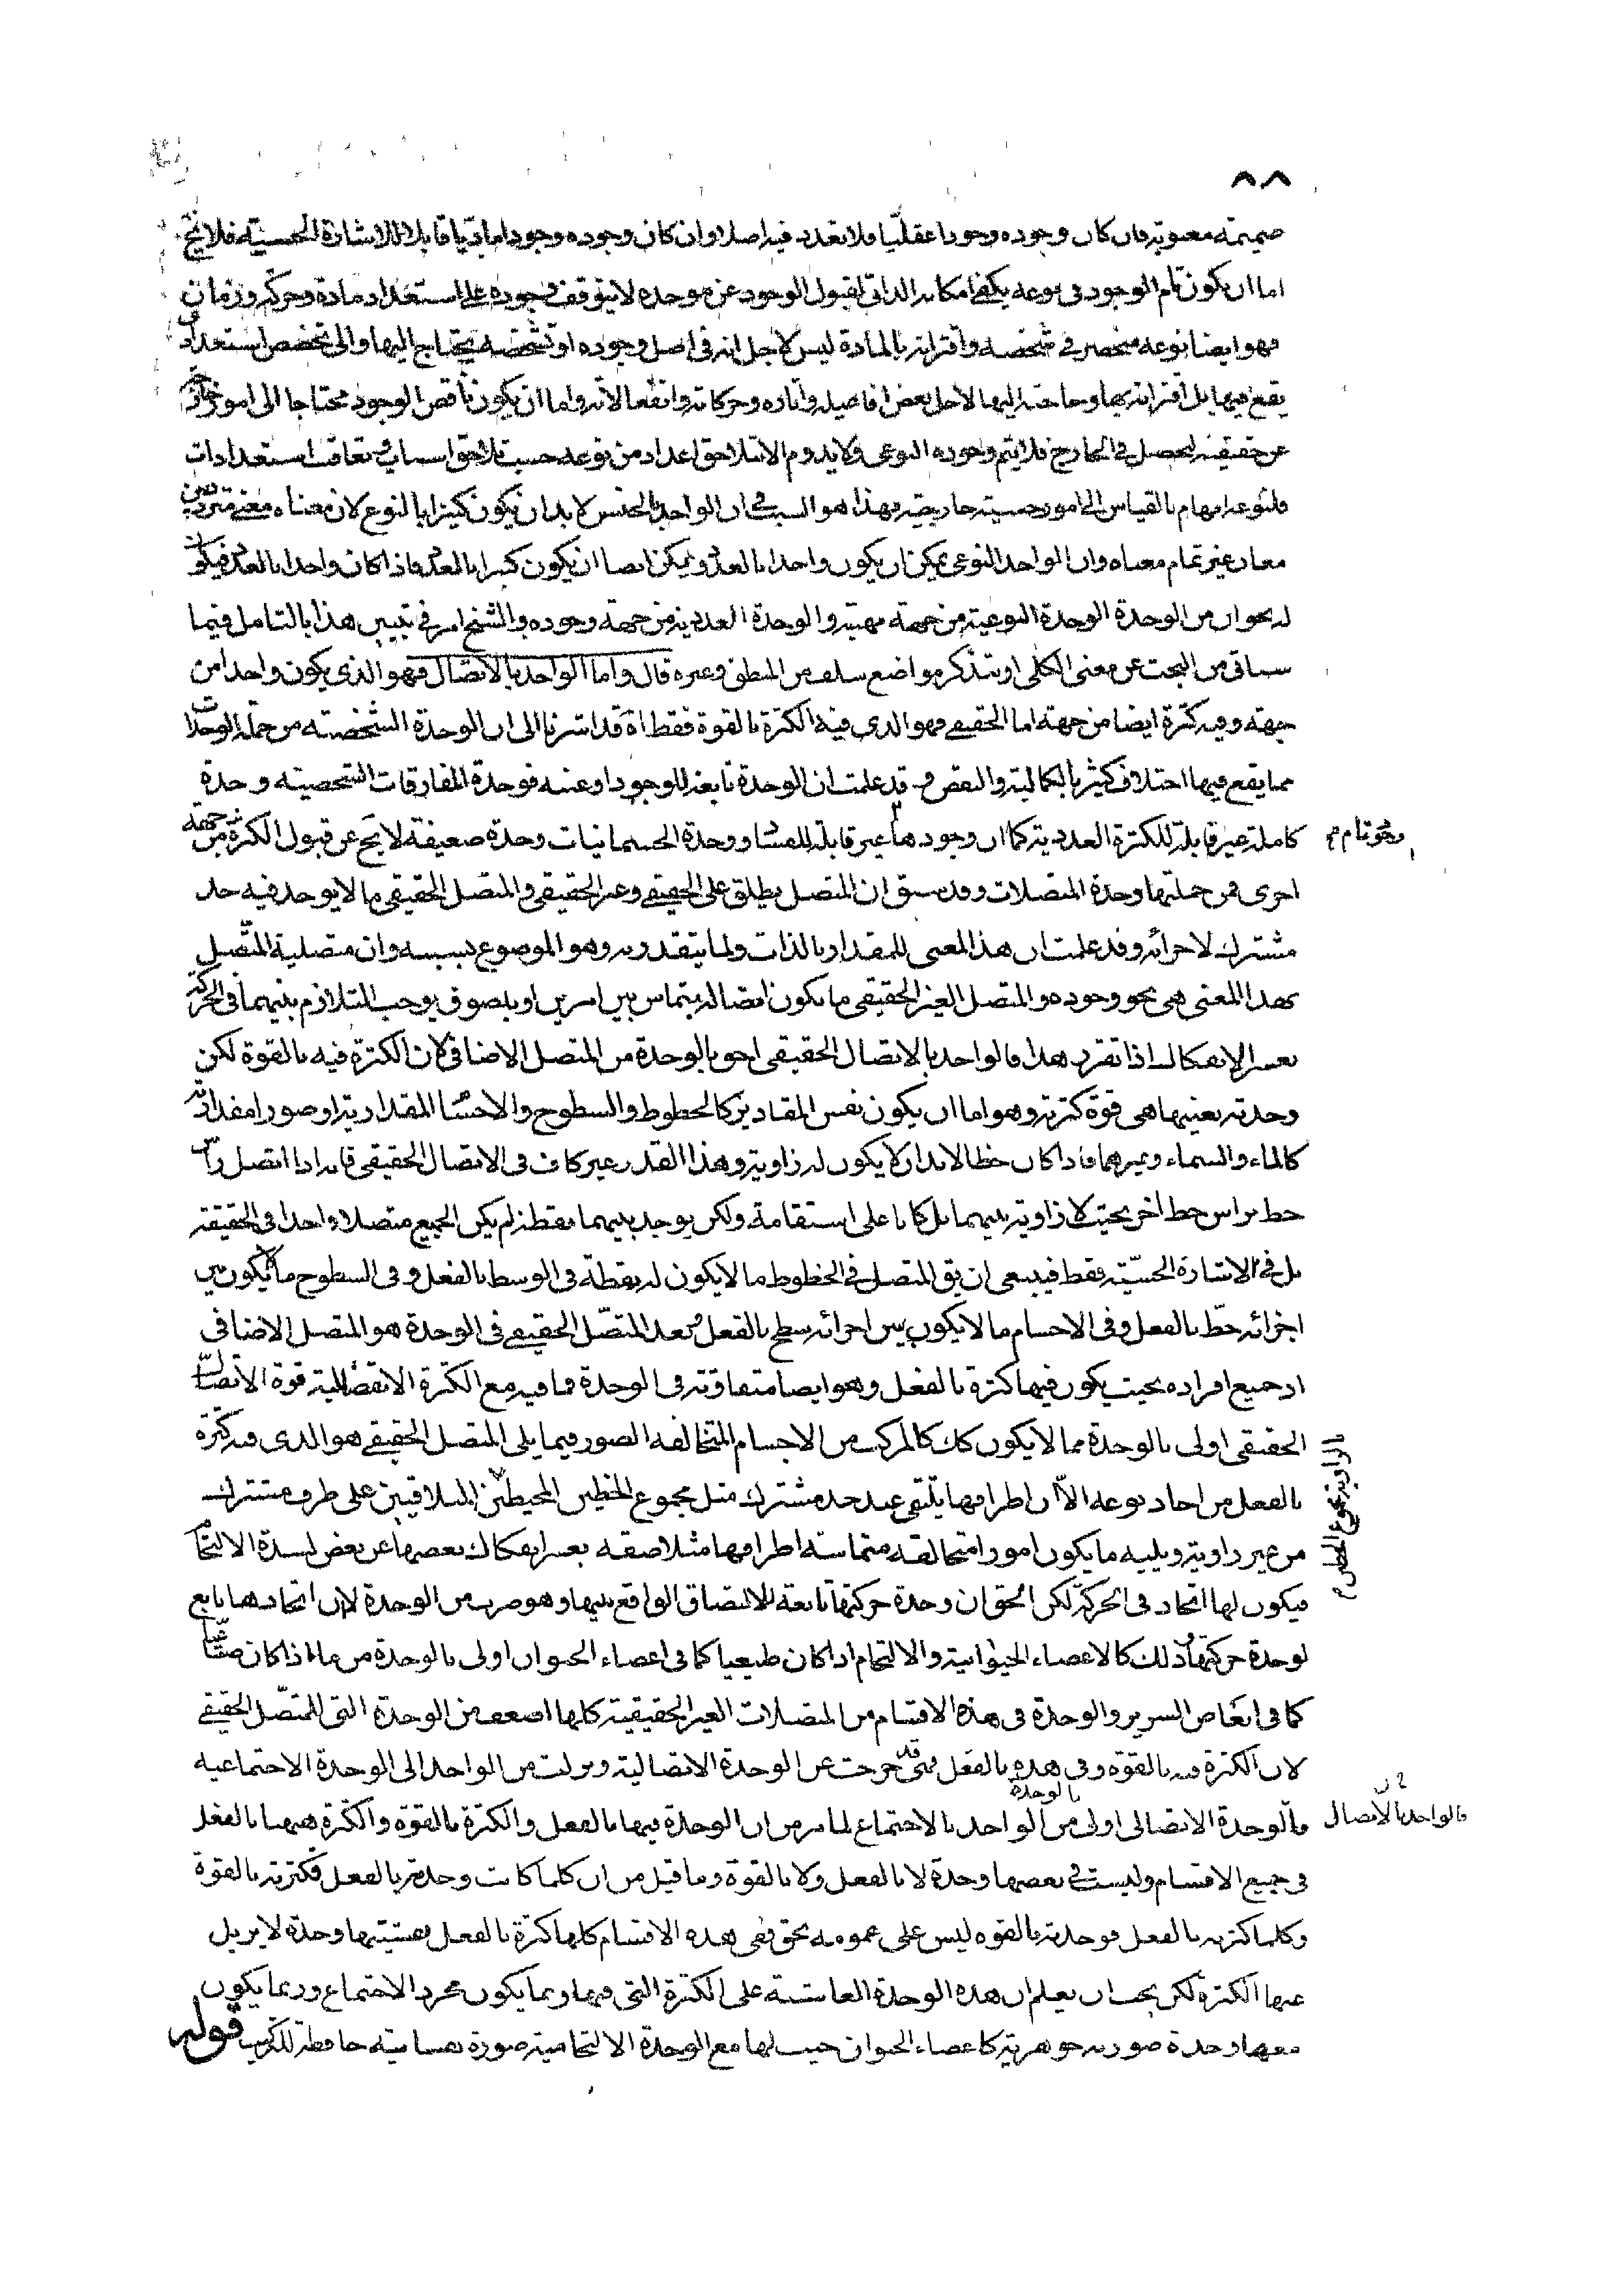 ٨٨
ضميمة معنوية فان كان وجوده وجودا عقليّا فلا تعدد فيه اصلا وان كان وجوده وجودا ماديّا قابلا للاشارة الحسيّة فلا يخ
اما ان يكون تام الوجود فى نوعه يكفى امكانه الذاتى لقبول الوجود عن موجده لا يتوقف وجوده على استعداد مادة وحركة وزمان
فهو ايضا نوعه منحصر فى شخصه واقترانه بالمادة ليس لاجل انه فى اصل وجوده او تشخصه يحتاج اليها والى تخصص استعداد
يقع فيها بل اقترانه بها وحاجته اليها لاجل بعض افاعيله واثاره وحركاته وانفعالاته واما ان يكون ناقص الوجود محتاجا الى امور خارجة
عن حقيقته ليحصل فى الخارج فلا يتم وجوده النوعى ولا يدوم الا بتلاحق اعداد من نوعه حسب تلاحق اسباب وتعاقب استعدادات
فلنوعه ابهام بالقياس الى امور حسية خارجية فهذا هو السبب فى ان الواحد بالجنس لا بد ان يكون كثيرا بالنوع لان معناه معنى متردد بين
معان غير تمام معناه وان الواحد النوعى يمكن ان يكون واحدا بالعدد ويمكن ايضا ان يكون كثيرا بالعدد فاذا كان واحدا بالعدد فيكون
له نحوان من الوحدة الوحدة النوعية من جهة مهيته والوحدة العددية من جهة وجوده والشيخ امر فى تبيين هذا بالتامل فيما
سياتى من البحث عن معنى الكلى او بتذكر مواضع سلف من المنطق وغيره قال واما الواحد بالاتصال فهو الذى يكون واحدا من
جهة وفيه كثرة ايضا من جهة اما الحقيقى فهو الذى فيه الكثرة بالقوة فقط اه قد اشرنا الى ان الوحدة الشخصية من جملة الوحدات
مما يقع فيها اختلاف كثير بالكمالية والنقص و قد علمت ان الوحدة تابعة للوجود او عينه فوحدة المفارقات الشخصية وحدة
كاملة غير قابلة للكثرة العددية كما ان وجودها غير قابلة للفساد ووحدة الجسمانيات وحدة ضعيفة لا يخ عن قبول الكثرة من جهة
ونحو تام م
اخرى فمن جملتها وحدة المتصلات وقد سبق ان المتصل يطلق على الحقيقى وغير الحقيقى والمتصل الحقيقى ما لا يوجد فيه حد
مشترك لاجزائه وقد علمت ان هذا المعنى للمقدار بالذات ولما يتقدر به وهو الموضوع بسببه وان متصلية المتّصل
بهذا المعنى هى نحو وجوده والمتصل الغير الحقيقى ما يكون اتصاله بتماس بين امرين او بلصوق يوجب التلازم بينهما فى الحركة
بعسر الانفكاك اذا تقرر هذا فالواحد بالاتصال الحقيقى احق بالوحدة من المتصل الاضافى لان الكثرة فيه بالقوة لكن
وحدته بعينها هى قوة كثرته وهو اما ان يكون نفس المقادير كالخطوط والسطوح والاجسام المقدارية او صورا مقدارية
كالماء والسماء وغيرهما فاذا كان خطا لابد ان لا يكون له زاوية وهذا القدر غير كاف فى الاتصال الحقيقى فانه اذا اتصل راس
خط براس خط اخر بحيث لا زاوية بينهما بل كانا على استقامة ولكن يوجد بينهما نقطة لم يكن الجميع متصلا واحدا فى الحقيقة
بل فى الاشارة الحسّية فقط فينبغى ان يق المتصل فى الخطوط ما لا يكون له نقطة فى الوسط بالفعل وفى السطوح ما لا يكون بين
اجزائه خطّ بالفعل وفى الاجسام ما لا يكون بين اجزائه سطح بالفعل وبعد المتصّل الحقيقى فى الوحدة هو المتصل الاضافى
اذ جميع افراده بحيث يكون فيها كثرة بالفعل وهو ايضا متفاوتة فى الوحدة فما فيه مع الكثرة الانفصالية قوة الاتصال
الحقيقى اولى بالوحدة مما لا يكون كك كالمركب من الاجسام المتخالفة الصور فيما يلى المتصل الحقيقى هو الذى فيه كثرة
بالزاوية مجموع الخطين م
بالفعل من احاد نوعه الاّ ان اطرافها يلتقى عند حد مشترك مثل مجموع الخطين المحيطين المتلاقيين على طرف مشترك
من غير زاوية ويليه ما يكون امورا متخالفة متماسة اطرافها متلاصقة بعسر انفكاك بعضها عن بعض لشدة الالتحام
فيكون لها اتحاد فى الحركة لكن الحق ان وحدة حركتها تابعة للالتصاق الواقع بينها وهو ضرب من الوحدة لان اتحادها تابع
لوحدة حركتها وذلك كالاعضاء الحيوانية والالتحام اذا كان طبيعيا كما فى اعضاء الحيوان اولى بالوحدة من ما اذا كان صناعيا
كما فى ابعاض السرير والوحدة فى هذه الاقسام من المتصلات الغير الحقيقية كلها اضعف من الوحدة التى للمتصّل الحقيقى
لان الكثرة فيه بالقوة وفى هذه بالفعل فهى قد خرجت عن الوحدة الاتصالية ونزلت من الواحد الى الوحدة الاجتماعية
فالوحدة الاتصالى اولى بالوحدة من الواحد بالاجتماع لما مر من ان الوحدة فيها بالفعل والكثرة بالقوة والكثرة ههنا بالفعل
فالواحد بالاتصال
فى جميع الاقسام وليست فى بعضها وحدة لا بالفعل ولا بالقوة وما قيل من ان كلما كانت وحدته بالفعل فكثرته بالقوة
وكلما كثرته بالفعل فوحدته بالقوه ليس على عمومه بحق ففى هذه الاقسام كلها كثرة بالفعل غشيتها وحدة لا يزيل
عنها الكثرة لكن يجب ان يعلم ان هذه الوحدة الغاشية على الكثرة التى فيها ربما يكون مجرد الاجتماع وربما يكون
معها وحدة صورية جوهرية كاعضاء الحيوان حيث لها مع الوحدة الالتحامية صورة نفسانية حافظة للتركيب قوله